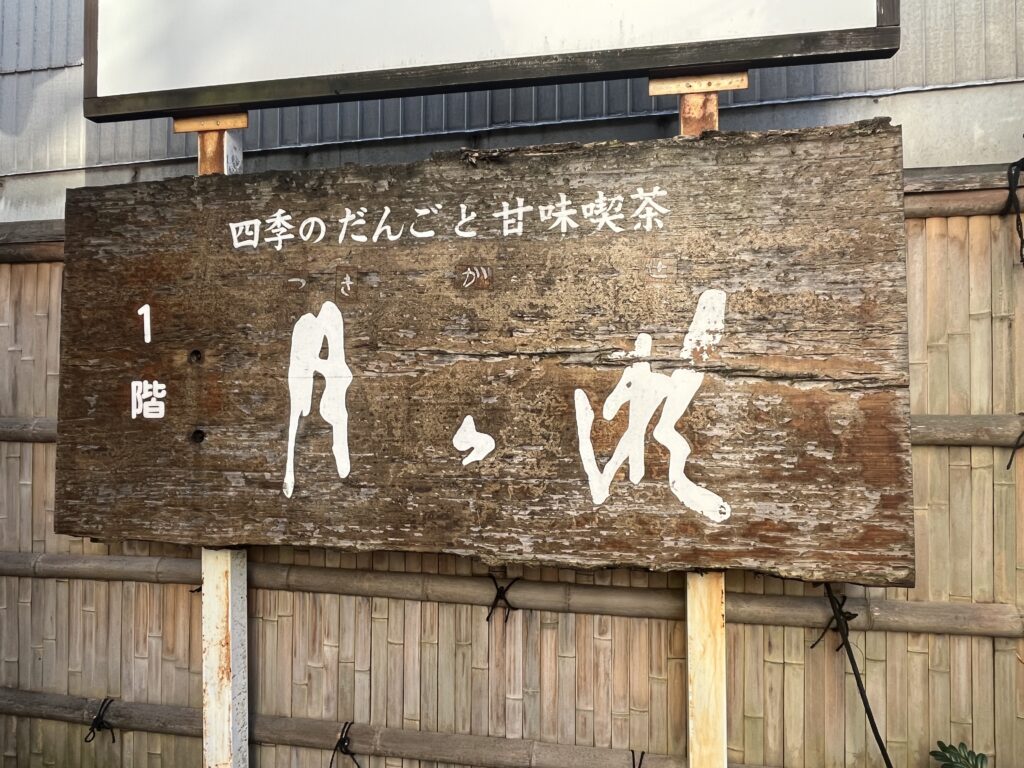 四季のだんごと甘味喫茶
つきがせ
1階
月ヶ瀬